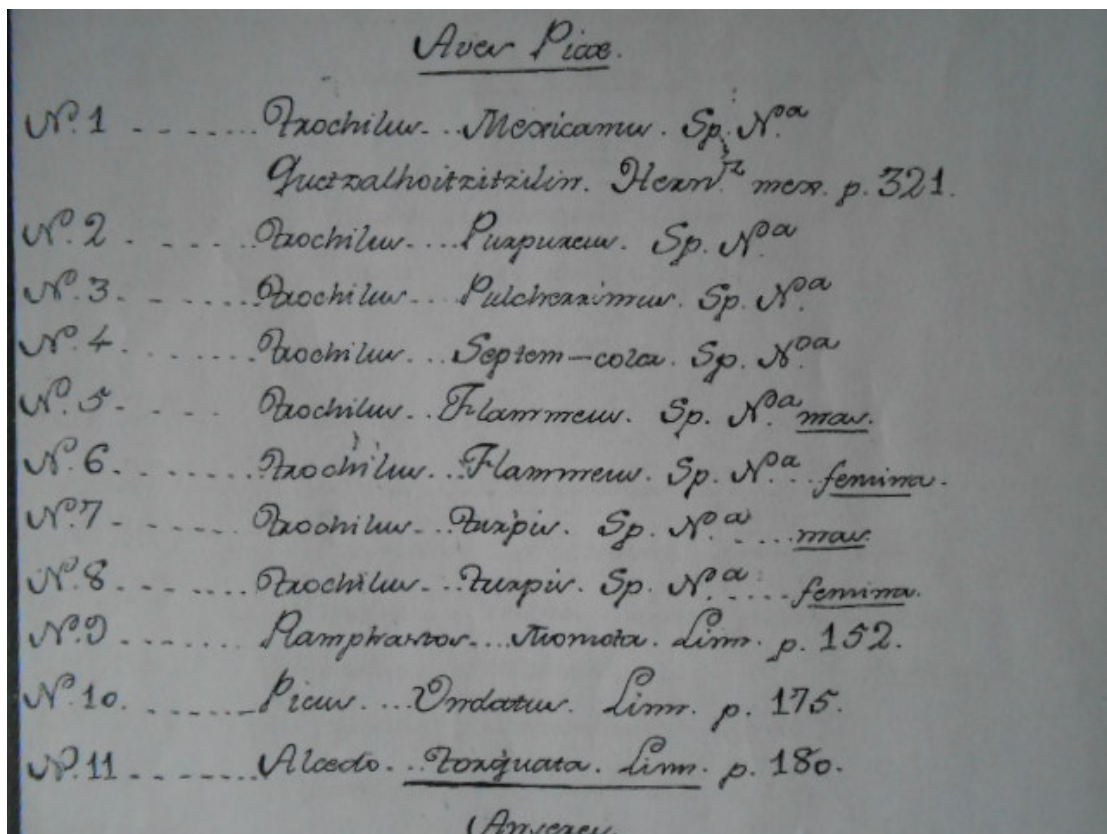 Aves Picæ.
N.º 1 - - - - - - - Trochilus - - - Mexicanus. Sp. N.ª
Quetzalhoitzitzilin. Hern.z mex. p. 321.
N.º 2 - - - - - Trochilus - - - Purpureus. Sp. N.ª
N.º 3. - - - - - - Trochilus - - - Pulcherrimus. Sp. N.ª
N.º 4. - - - - - Trochilus - - - Septem-color. Sp. N.ª
N.º 5. - - - - Trochilus - - Flammeus. Sp. N.ª mas.
N.º 6. - - - - - - Trochilus - - Flammeus. Sp. N.ª - - femina.
N.º 7 - - - - - - Trochilus - - Turpis. Sp. N.ª - - - - mas.
N.º 8. - - - - - - Trochilus - - Turpis. Sp. N.ª - - - - femina.
N.º 9 - - - - - - Ramphastos - - - Momota. Linn. p. 152.
N.º 10. - - - - - - Picus - - - Undatus. Linn. p. 175.
N.º 11 - - - - - - Alcedo - - Torquata. Linn. p. 180.
Anseres.